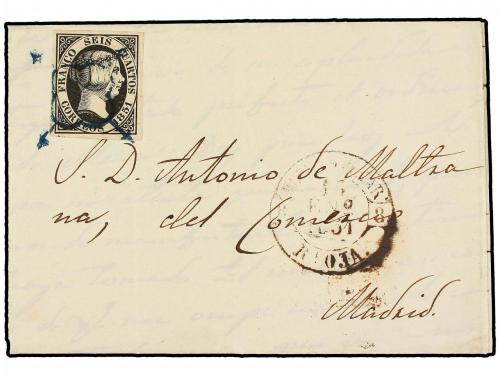 FRANCO SEIS CUARTOS
CORREOS 1851
S. D. Antonio de Maltra
na, del Comercio
8
1851
RIOJA.
Madrid.